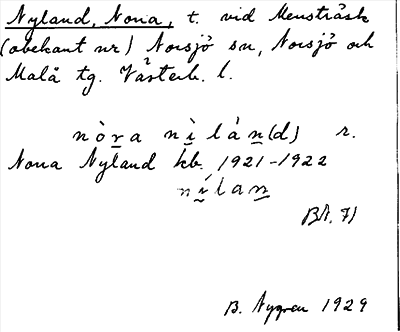 Nyland, Nona, t. vid Mensträsk
(obekant nr) Norsjö sn, Norsjö och
Malå tg. Västerb. l.
nòra nìlàn(d) r.
Nona Nyland kb. 1921-1922
nílan
BN. 71
B. Nygren 1929